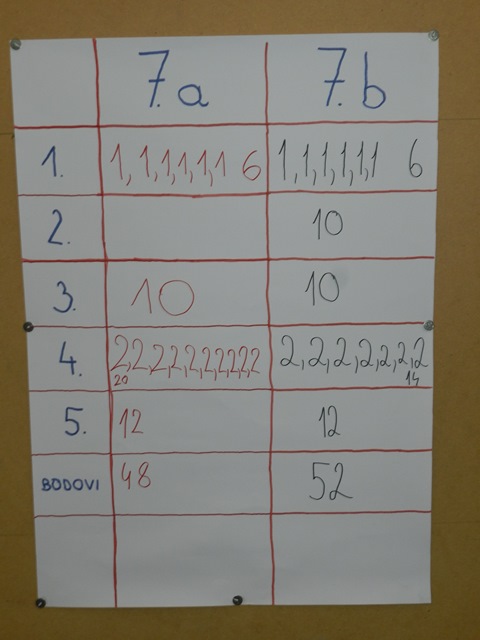 7.a 7.b
1. 1,1,1,1,1,1 6 1,1,1,1,1,1 6
2. 10
3. 10 10
4. 2,2,2,2,2,2,2,2,2,2 2,2,2,2,2,2,2
20 14
5. 12 12
BODOVI 48 52